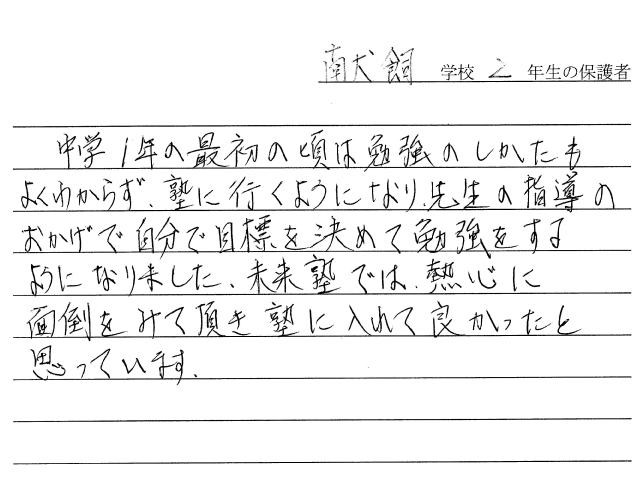 南犬飼 学校 2 年生の保護者
中学1年の最初の頃は勉強のしかたも
よくわからず、塾に行くようになり、先生の指導の
おかげで自分で目標を決めて勉強をする
ようになりました、未来塾では、熱心に
面倒をみて頂き塾に入れて良かったと
思っています.